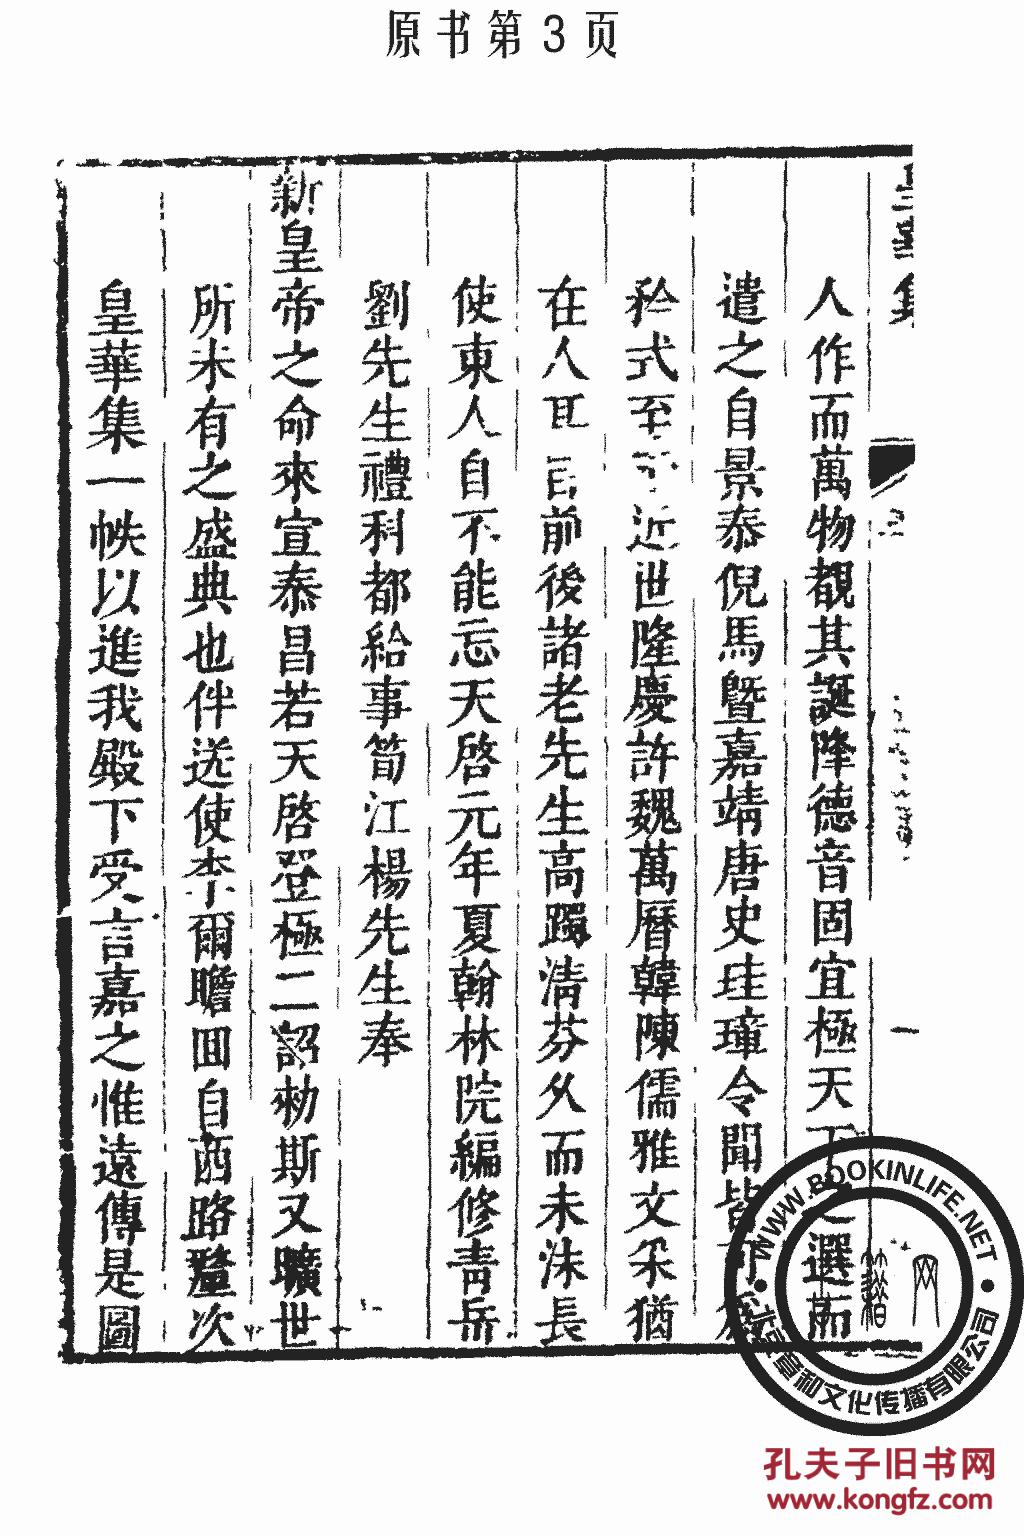 原书第3页
人作而萬物覩其誕降德音固宜極天下之選而
遣之自景泰倪馬曁嘉靖唐史珪璋令聞皆可
矜式至於近世隆慶許魏萬曆韓陳儒雅文采猶
在人耳目前後諸老先生高躅淸芬久而未沬長
使東人自不能忘天啓元年夏翰林院編修靑岳
劉先生禮科都給事筍江楊先生奉
新皇帝之命來宣泰昌若天啓登極二詔勑斯又曠世
所未有之盛典也伴送使李爾瞻囬自西路釐次
皇華集一帙以進我殿下受言嘉之惟遠傳是圖
一
WWW.BOOKINLIFE.NET
壹和文化传播有限公司
孔夫子旧书网
www.kongfz.com